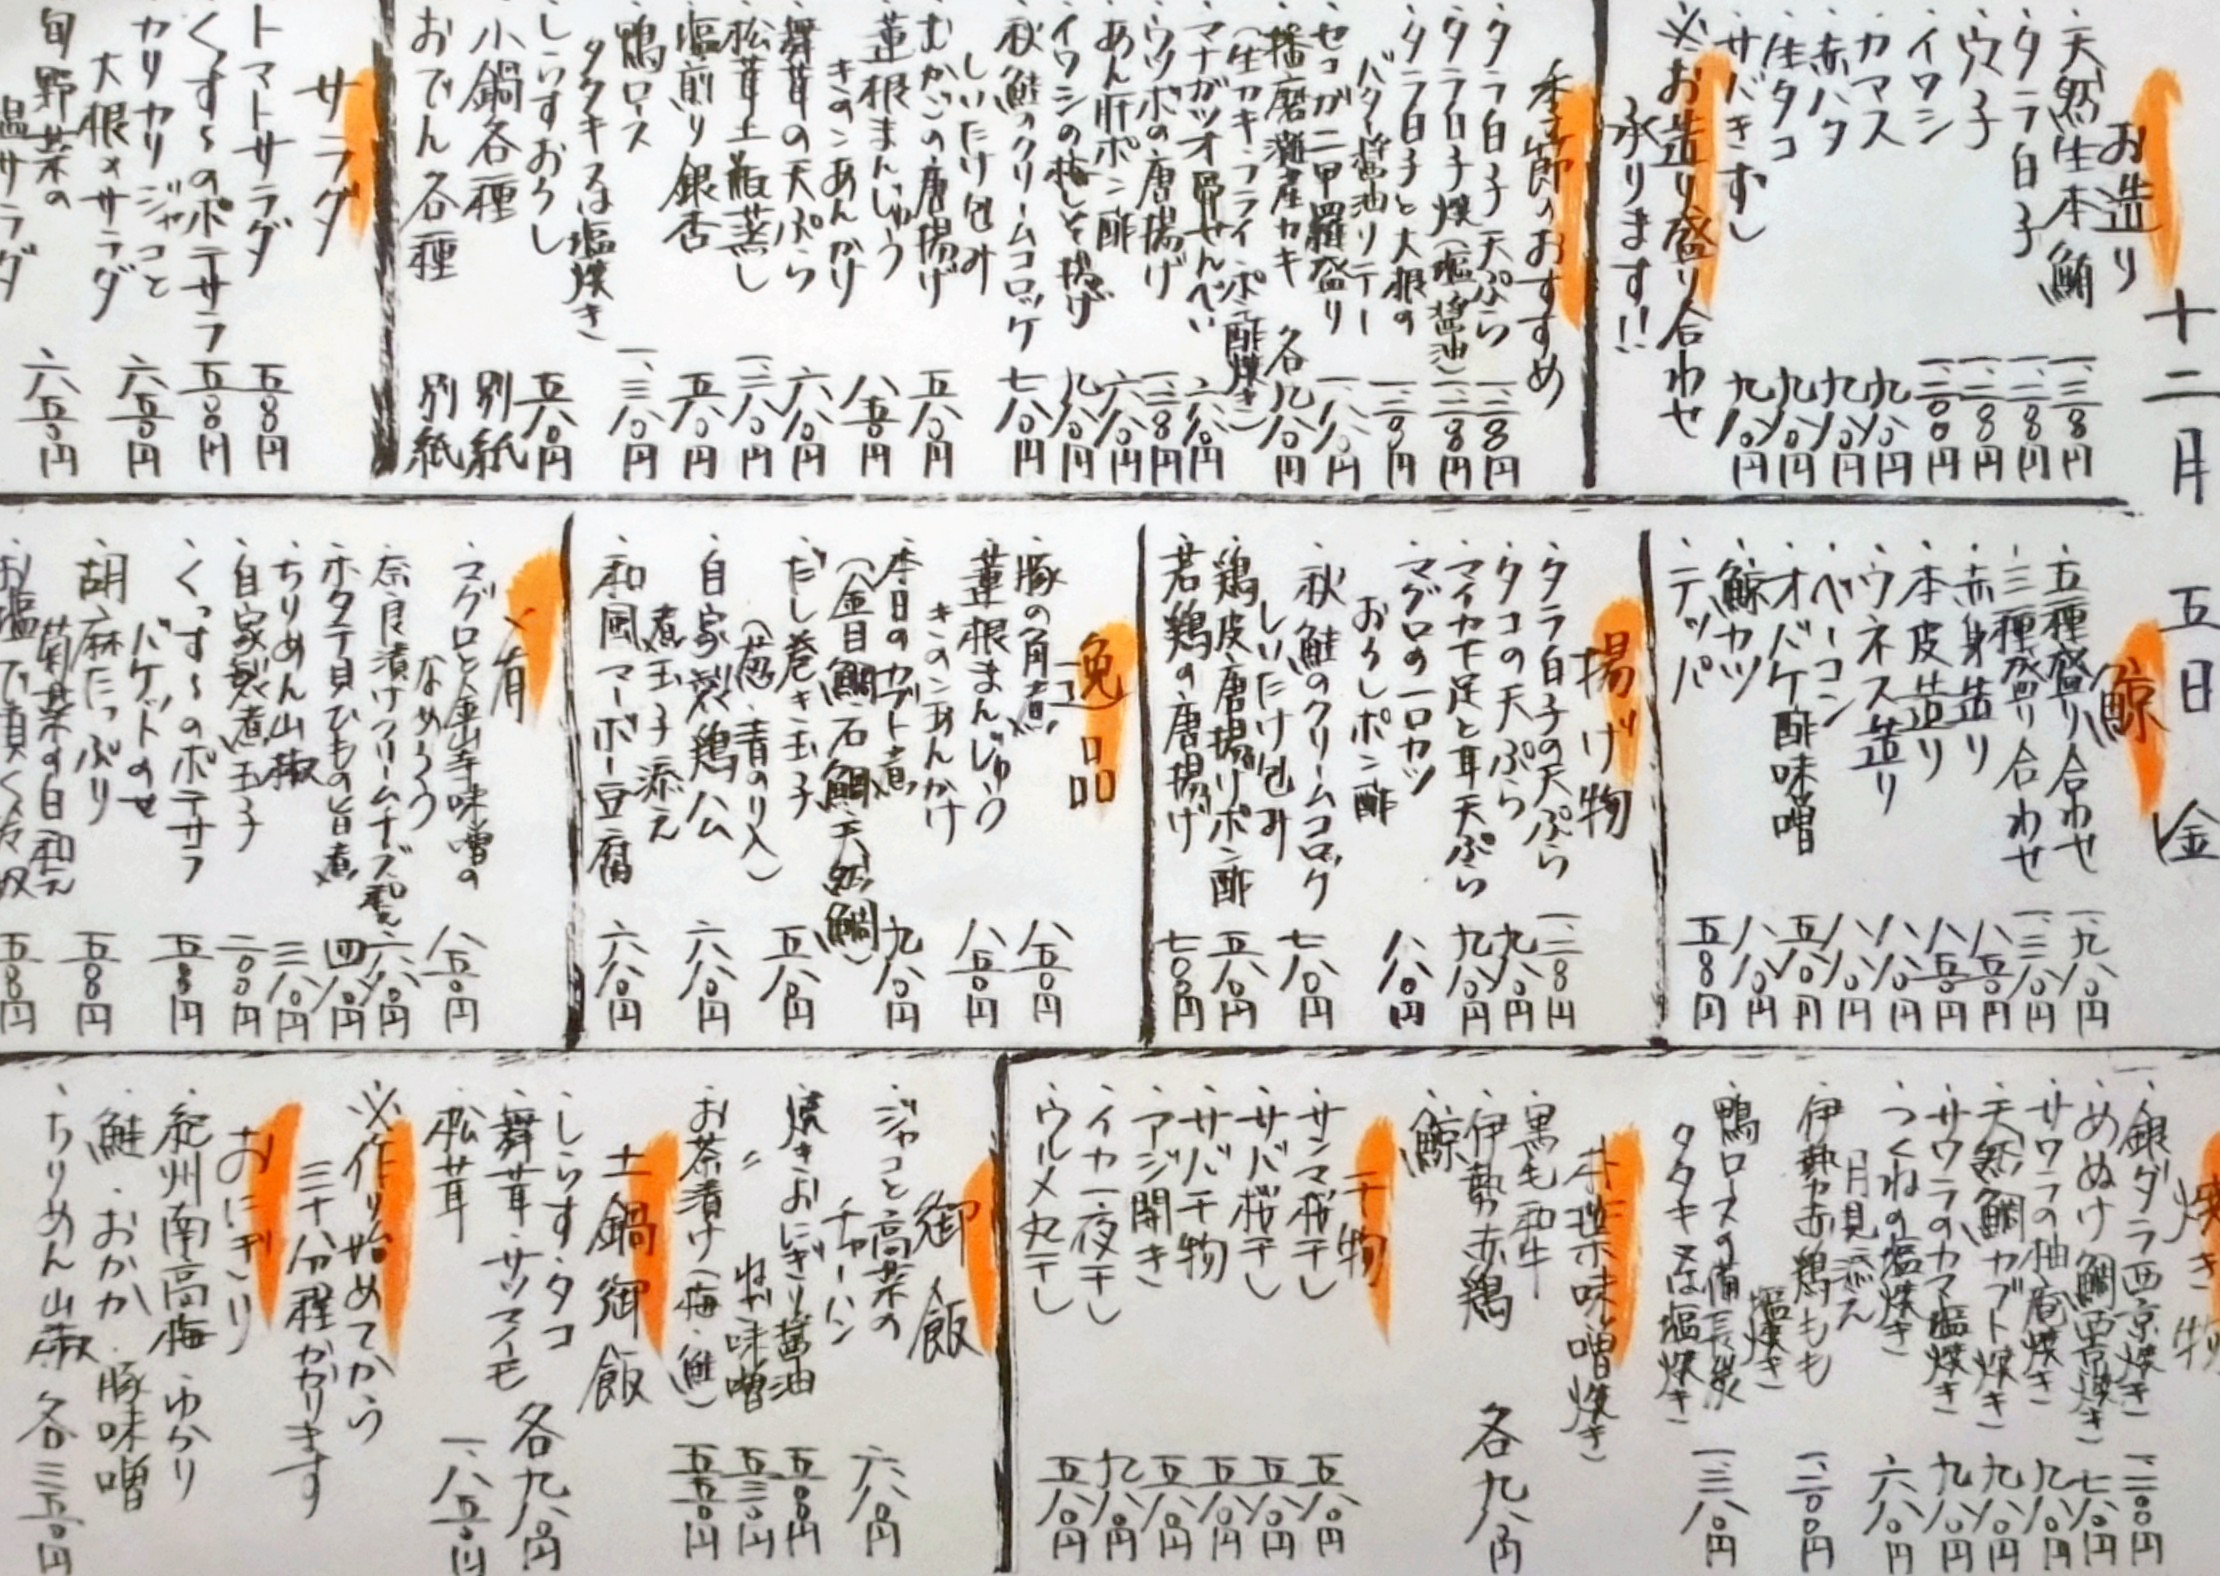 十二月 五日 金
お造り
・天然生本鮪 一、三八〇円
・タラ白子 一、二八〇円
・ウニ
・イワシ
・カマス 九八〇円
・赤ハタ 九八〇円
・生タコ 九八〇円
・サバきずし 九八〇円
※お造り盛り合わせ
承ります!!
季節のおすすめ
・タラ白子天ぷら 一、二八〇円
・タラ白子焼(塩・醤油) 一、二八〇円
・タラ白子と大根の
バター醤油ソテー
・セコガニ甲羅盛り 一、八八〇円
・播磨灘産カキ 各九八〇円
(生カキ・フライ・ポン酢・焼き)
・マナガツオ骨せんべい
・ウツボの唐揚げ
・あん肝ポン酢 六八〇円
・イワシの梅しそ揚げ 九八〇円
・秋鮭のクリームコロッケ 七八〇円
しいたけ包み
・むかごの唐揚げ 五八〇円
・蓮根まんじゅう 八五〇円
きのこあんかけ
・舞茸の天ぷら 六八〇円
・松茸土瓶蒸し
・塩煎り銀杏 五八〇円
・鴨ロース 一、三八〇円
タタキ又は塩焼き
・しらすおろし 五八〇円
・小鍋各種 別紙
・おでん各種 別紙
サラダ
・トマトサラダ 五八〇円
・くっすーのポテサラ 五八〇円
・カリカリジャコと
大根のサラダ 六五〇円
・旬野菜の
温サラダ 六五〇円
鯨
・五種盛り合わせ 一、九八〇円
・三種盛り合わせ 一、三八〇円
・赤身造り 八五〇円
・本皮造り 八五〇円
・ウネス造り 八八〇円
・ベーコン 八八〇円
・オバケ酢味噌 五八〇円
・鯨カツ 八八〇円
・テッパ 五八〇円
揚げ物
・タラ白子の天ぷら 一、二八〇円
・タコの天ぷら 九八〇円
・マイカ下足と耳天ぷら 九八〇円
・マグロの一口カツ
おろしポン酢 八八〇円
・秋鮭のクリームコロッケ
しいたけ包み 七八〇円
・鶏皮唐揚げポン酢 五八〇円
・若鶏の唐揚げ 七八〇円
逸品
・豚の角煮 八五〇円
・蓮根まんじゅう
きのこあんかけ 八五〇円
・本日のカブト煮 九八〇円
(金目鯛・石鯛・天然鯛)
・だし巻き玉子 五八〇円
(葱・青のり入)
・自家製鶏ハム 六八〇円
煮玉子添え
・和風マーボー豆腐 六八〇円
肴
・マグロと金山寺味噌の
なめろう 八五〇円
・奈良漬けクリームチーズ和え 六八〇円
・ホタテ貝ひもの旨煮 四八〇円
・ちりめん山椒 三八〇円
・自家製煮玉子 二〇〇円
・くっすーのポテサラ
バゲットのせ 五八〇円
・胡麻たっぷり
菊菜の白和え 五八〇円
・お塩で頂く冷奴 五八〇円
焼き物
・銀ダラ西京焼き
・めぬけ鯛西京焼き
・サワラの柚庵焼き 九八〇円
・天然鯛カブト焼き 九八〇円
・サワラのカマ塩焼き 九八〇円
・つくねの塩焼き
月見添え 六八〇円
・伊勢赤鶏もも
塩焼き
・鴨ロースの備長炭
タタキ又は塩焼き 一、三八〇円
朴葉味噌焼き
・黒毛和牛
・伊勢赤鶏
・鯨
各九八〇円
干物
・サンマ桜干し 五八〇円
・サバ桜干し 五八〇円
・サバ干物 五八〇円
・アジ開き 五八〇円
・イカ一夜干し 九八〇円
・ウルメ丸干し 五八〇円
御飯
・ジャコと高菜の
チャーハン 六八〇円
・焼きおにぎり醤油 五〇〇円
〃 ねぎ味噌 五三〇円
・お茶漬け(梅・鮭) 五五〇円
土鍋御飯
・しらす・タコ
・舞茸・サツマイモ 各九八〇円
・松茸 一、八五〇円
※作り始めてから
三十分程かかります
おにぎり
・紀州南高梅・ゆかり
・鮭・おかか・豚味噌
・ちりめん山椒 各三五〇円